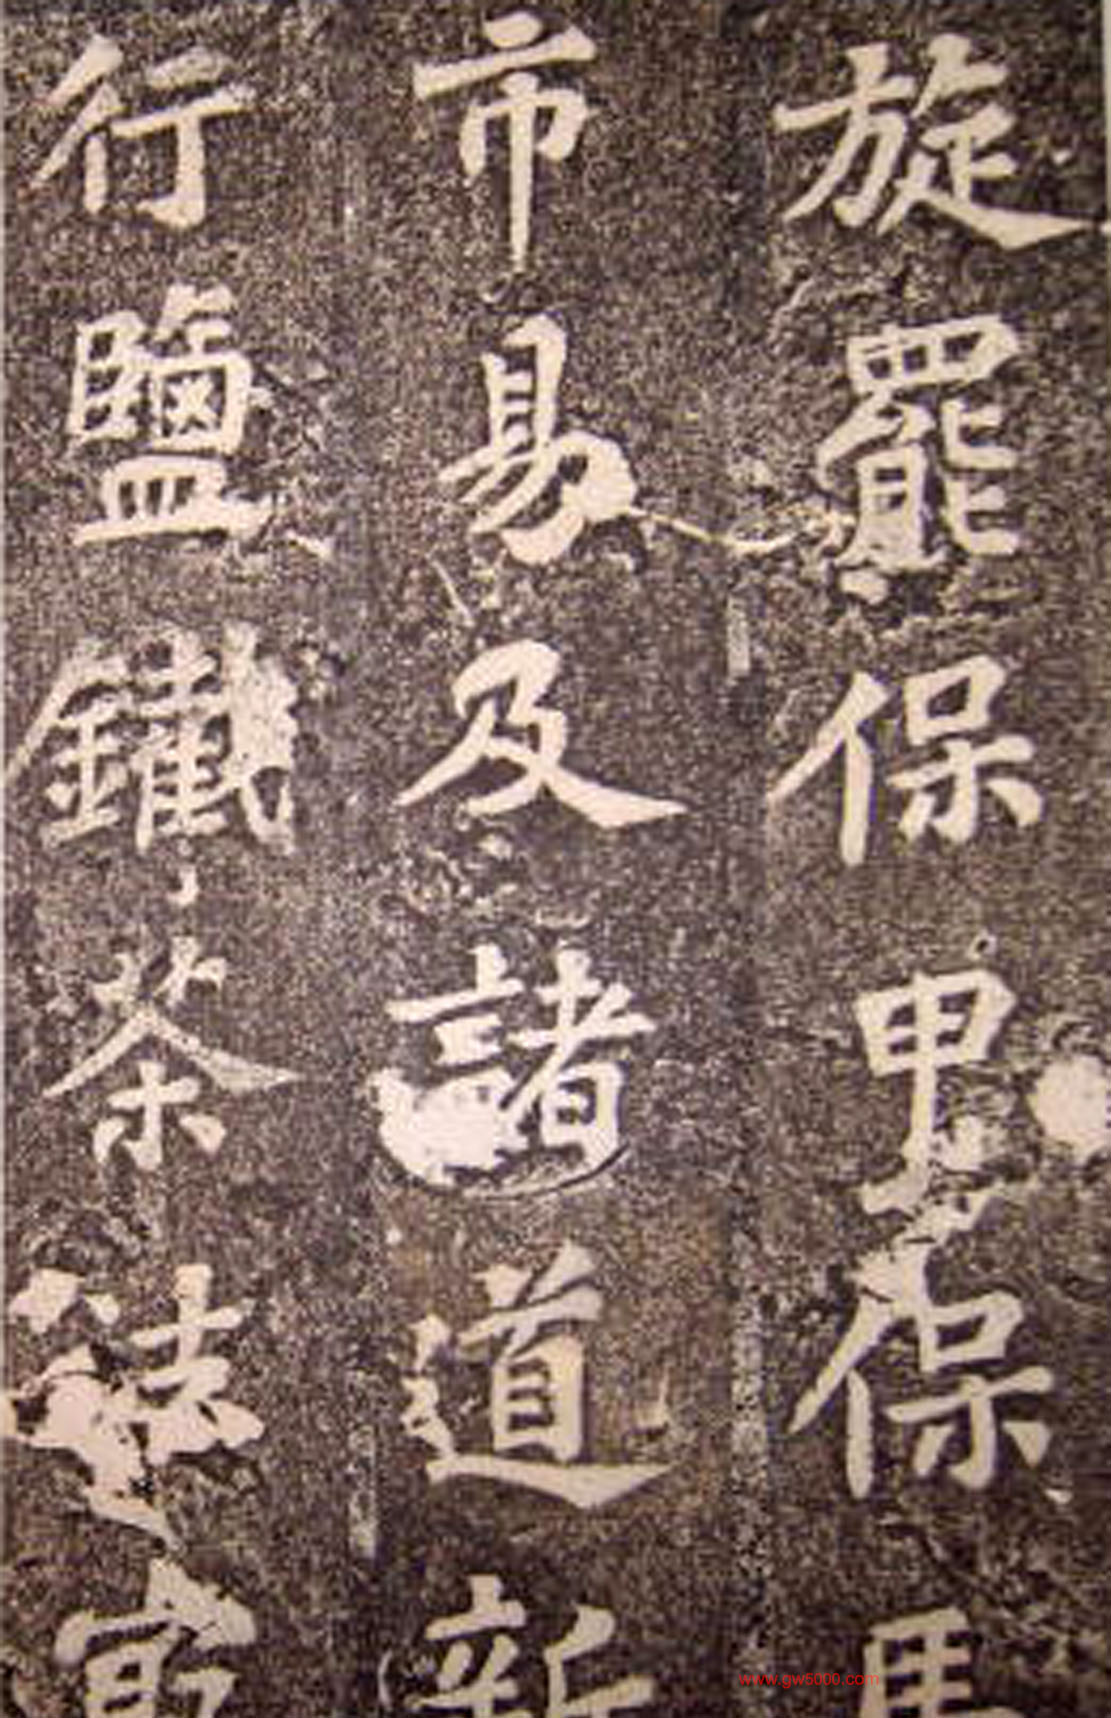 旋罷保甲保馬
市易及諸道新
行鹽鐵茶法㝡
www.gw5000.com